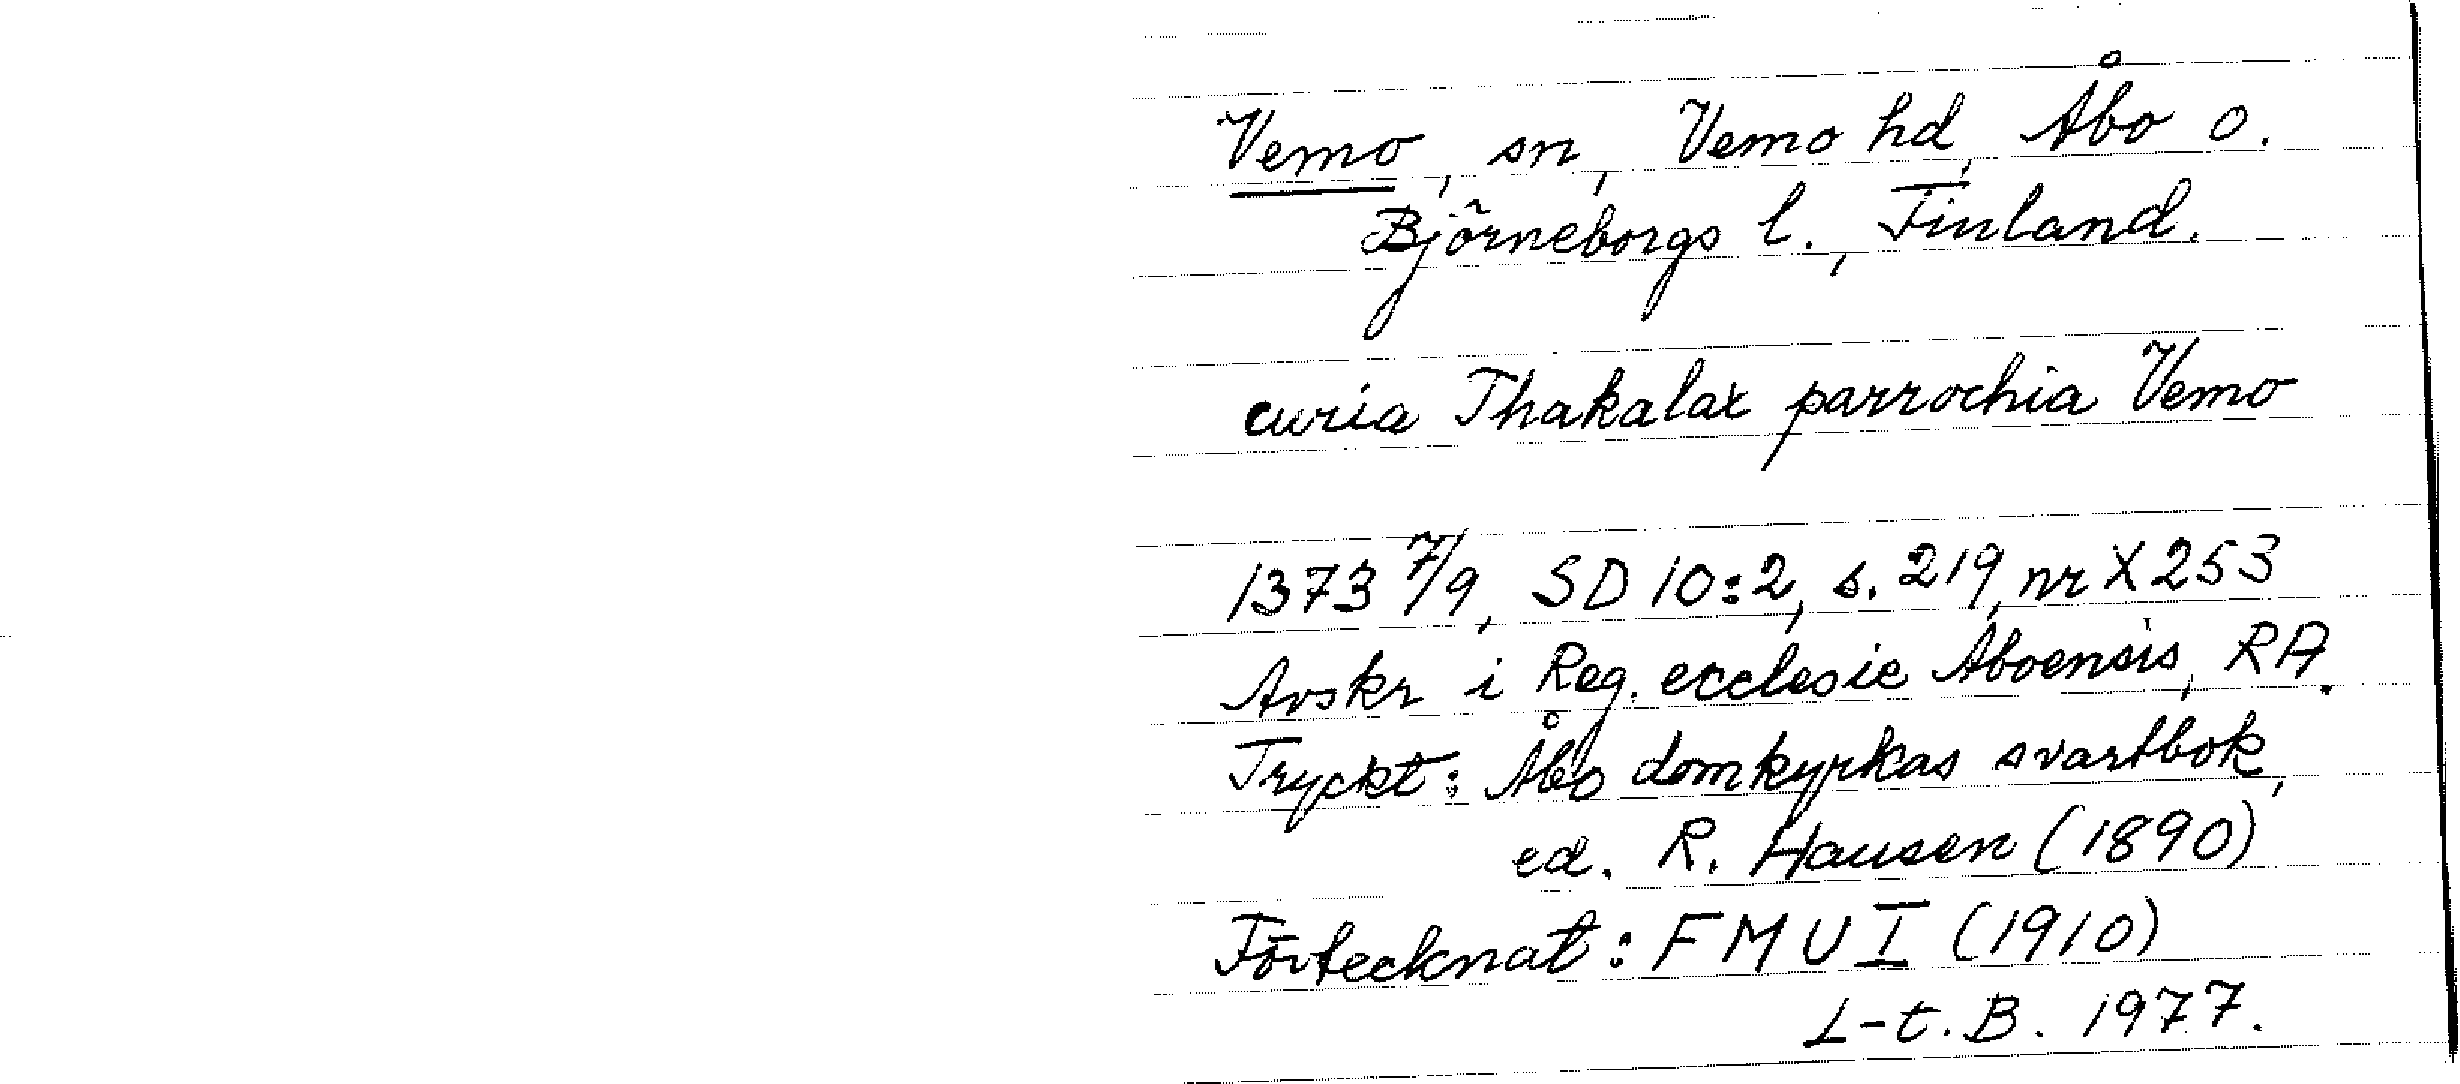 Vemo, sn, Vemo hd, Åbo o.
Björneborgs l., Finland.
curia Thakalax parrochia Vemo
1373 7/9, SD 10:2, s. 219, nr X 253
Avskr i Reg. ecclesie Aboensis, RA.
Tryckt: Åbo domkyrkas svartbok,
ed. R. Hausen (1890)
Förtecknat: FMU I (1910)
L-t. B. 1977.